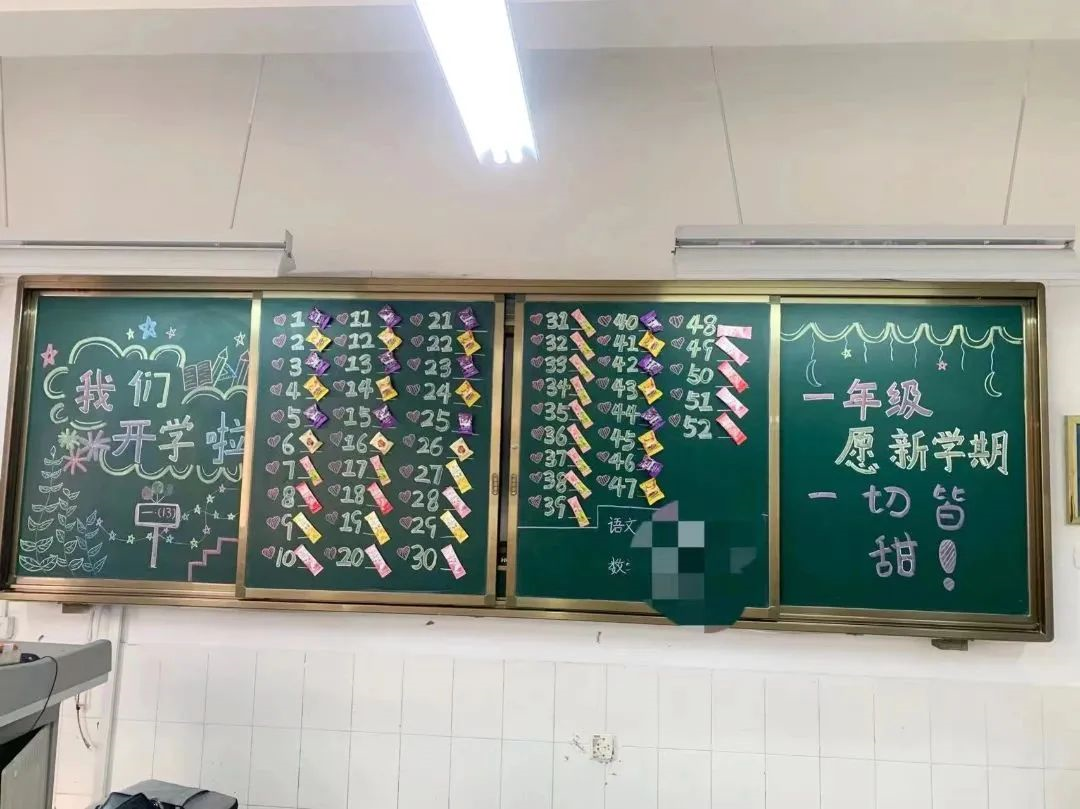 我们
开学啦
一·(13)
1 11 21
2 12 22
3 13 23
4 14 24
5 15 25
6 16 26
7 17 27
8 18 28
9 19 29
10 20 30
31 40 48
32 41 49
33 42 50
34 43 51
35 44 52
36 45
37 46
38 47
39
语文
数
一年级
愿新学期
一切皆
甜!